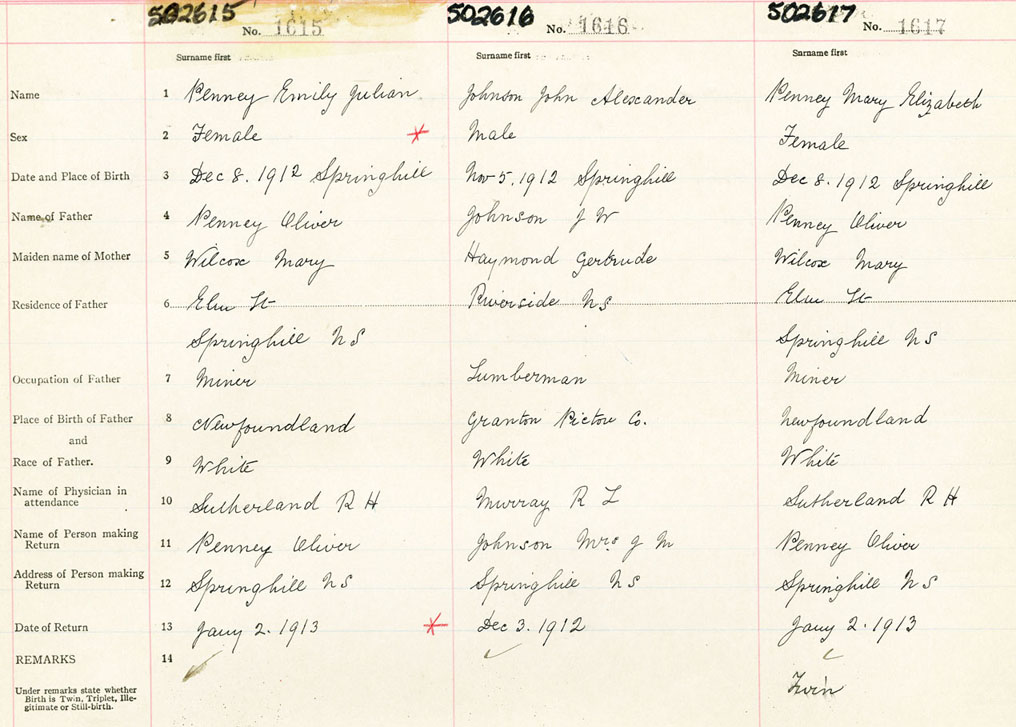 502615 502616 502617
No. 1615 No. 1616 No. 1617
Surname first Surname first Surname first
Name 1 Penney Emily Julian Johnson John Alexcander Penney Mary Elizabeth
Sex 2 Female Male Female
Date and Place of Birth 3 Dec 8. 1912 Springhill Nov 5. 1912 Springhill Dec 8. 1912 Springhill
Name of Father 4 Penney Oliver Johnson J W Penney Oliver
Maiden name of Mother 5 Wilcox Mary Haymond Gertrude Wilcox Mary
Residence of Father 6 Elm St Riverside NS Elm St
Springhill NS Springhill NS
Occupation of Father 7 Miner Lumberman Miner
Place of Birth of Father 8 Newfoundland Granton Pictou Co. Newfoundland
and
Race of Father. 9 White White White
Name of Physician in
attendance 10 Sutherland R H Murray R L Sutherland R H
Name of Person making
Return 11 Penney Oliver Johnson Mrs J M Penney Oliver
Address of Person making
Return 12 Springhill NS Springhill NS Springhill NS
Date of Return 13 Jany 2. 1913 Dec 3. 1912 Jany 2. 1913
REMARKS 14
Under remarks state whether
Birth is Twin, Triplet, Ille-
gitimate or Still-birth. Twin